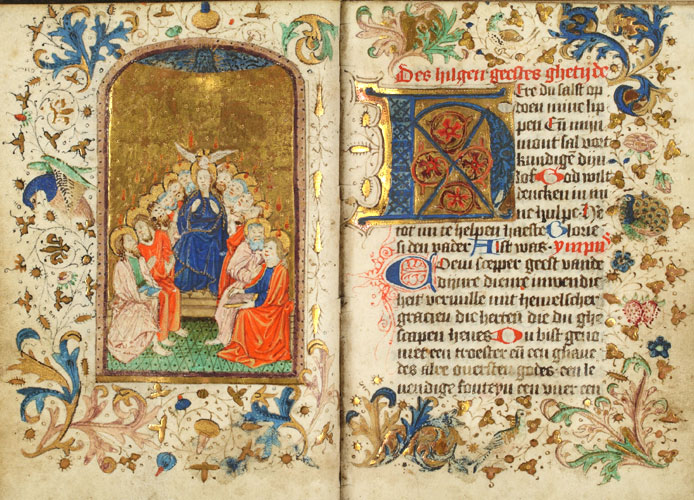 Des hilgen geestes ghetijde
HEre du salst op
doen mine lip
pen En mijn
mont sal vort
kundige dijn
lof God wil
dencken in mi
ne hulpe He
tot mi te helpen haeste Glorie
si den vader Alst was ympn
Coem scepper geest vande
dijnre dienre inwendic
heit vervulle mit hemelscher
gracien die herten die du ghe
scapen heves Du bist geno
met een troester en een ghave
des alre oversten godes een le
vendige fonteyn een vuer een